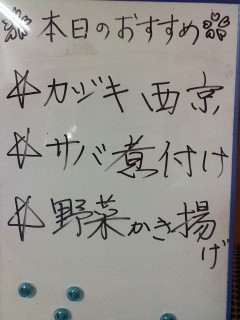 本日のおすすめ
☆カジキ西京
☆サバ煮付け
☆野菜かき揚げ